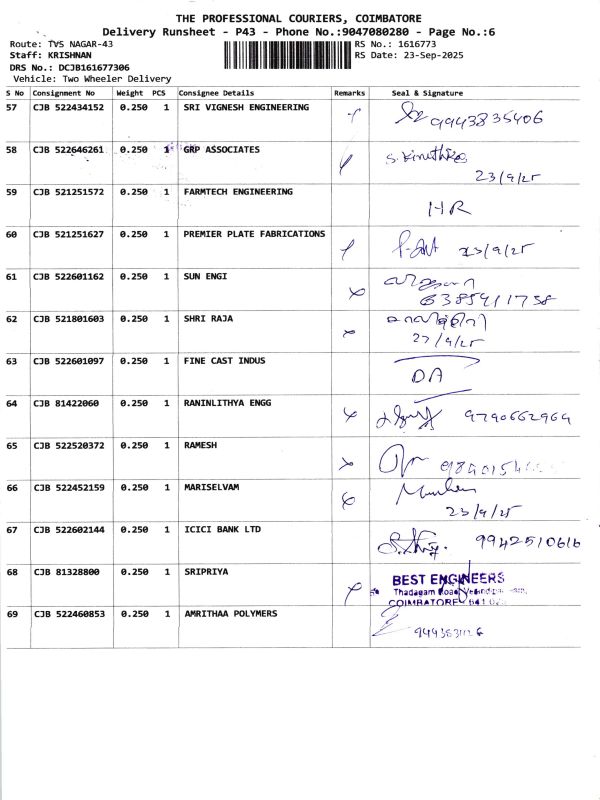 THE PROFESSIONAL COURIERS, COIMBATORE
Delivery Runsheet - P43 - Phone No.:9047080280 - Page No.:6
Route: TVS NAGAR-43 RS No.: 1616773
Staff: KRISHNAN RS Date: 23-Sep-2025
DRS No.: DCJB161677306
Vehicle: Two Wheeler Delivery
S No Consignment No Weight PCS Consignee Details Remarks Seal & Signature
57 CJB 522434152 0.250 1 SRI VIGNESH ENGINEERING 9943835406
58 CJB 522646261 0.250 1 GRP ASSOCIATES
23/9/25
59 CJB 521251572 0.250 1 FARMTECH ENGINEERING
HR
60 CJB 521251627 0.250 1 PREMIER PLATE FABRICATIONS 23/9/25
61 CJB 522601162 0.250 1 SUN ENGI
6385911758
62 CJB 521801603 0.250 1 SHRI RAJA
63 CJB 522601097 0.250 1 FINE CAST INDUS
DA
64 CJB 81422060 0.250 1 RANINLITHYA ENGG 9790662969
65 CJB 522520372 0.250 1 RAMESH
66 CJB 522452159 0.250 1 MARISELVAM
23/9/25
67 CJB 522602144 0.250 1 ICICI BANK LTD
9942510616
68 CJB 81328800 0.250 1 SRIPRIYA BEST ENGINEERS
Thadagam Road,
COIMBATORE
69 CJB 522460853 0.250 1 AMRITHAA POLYMERS